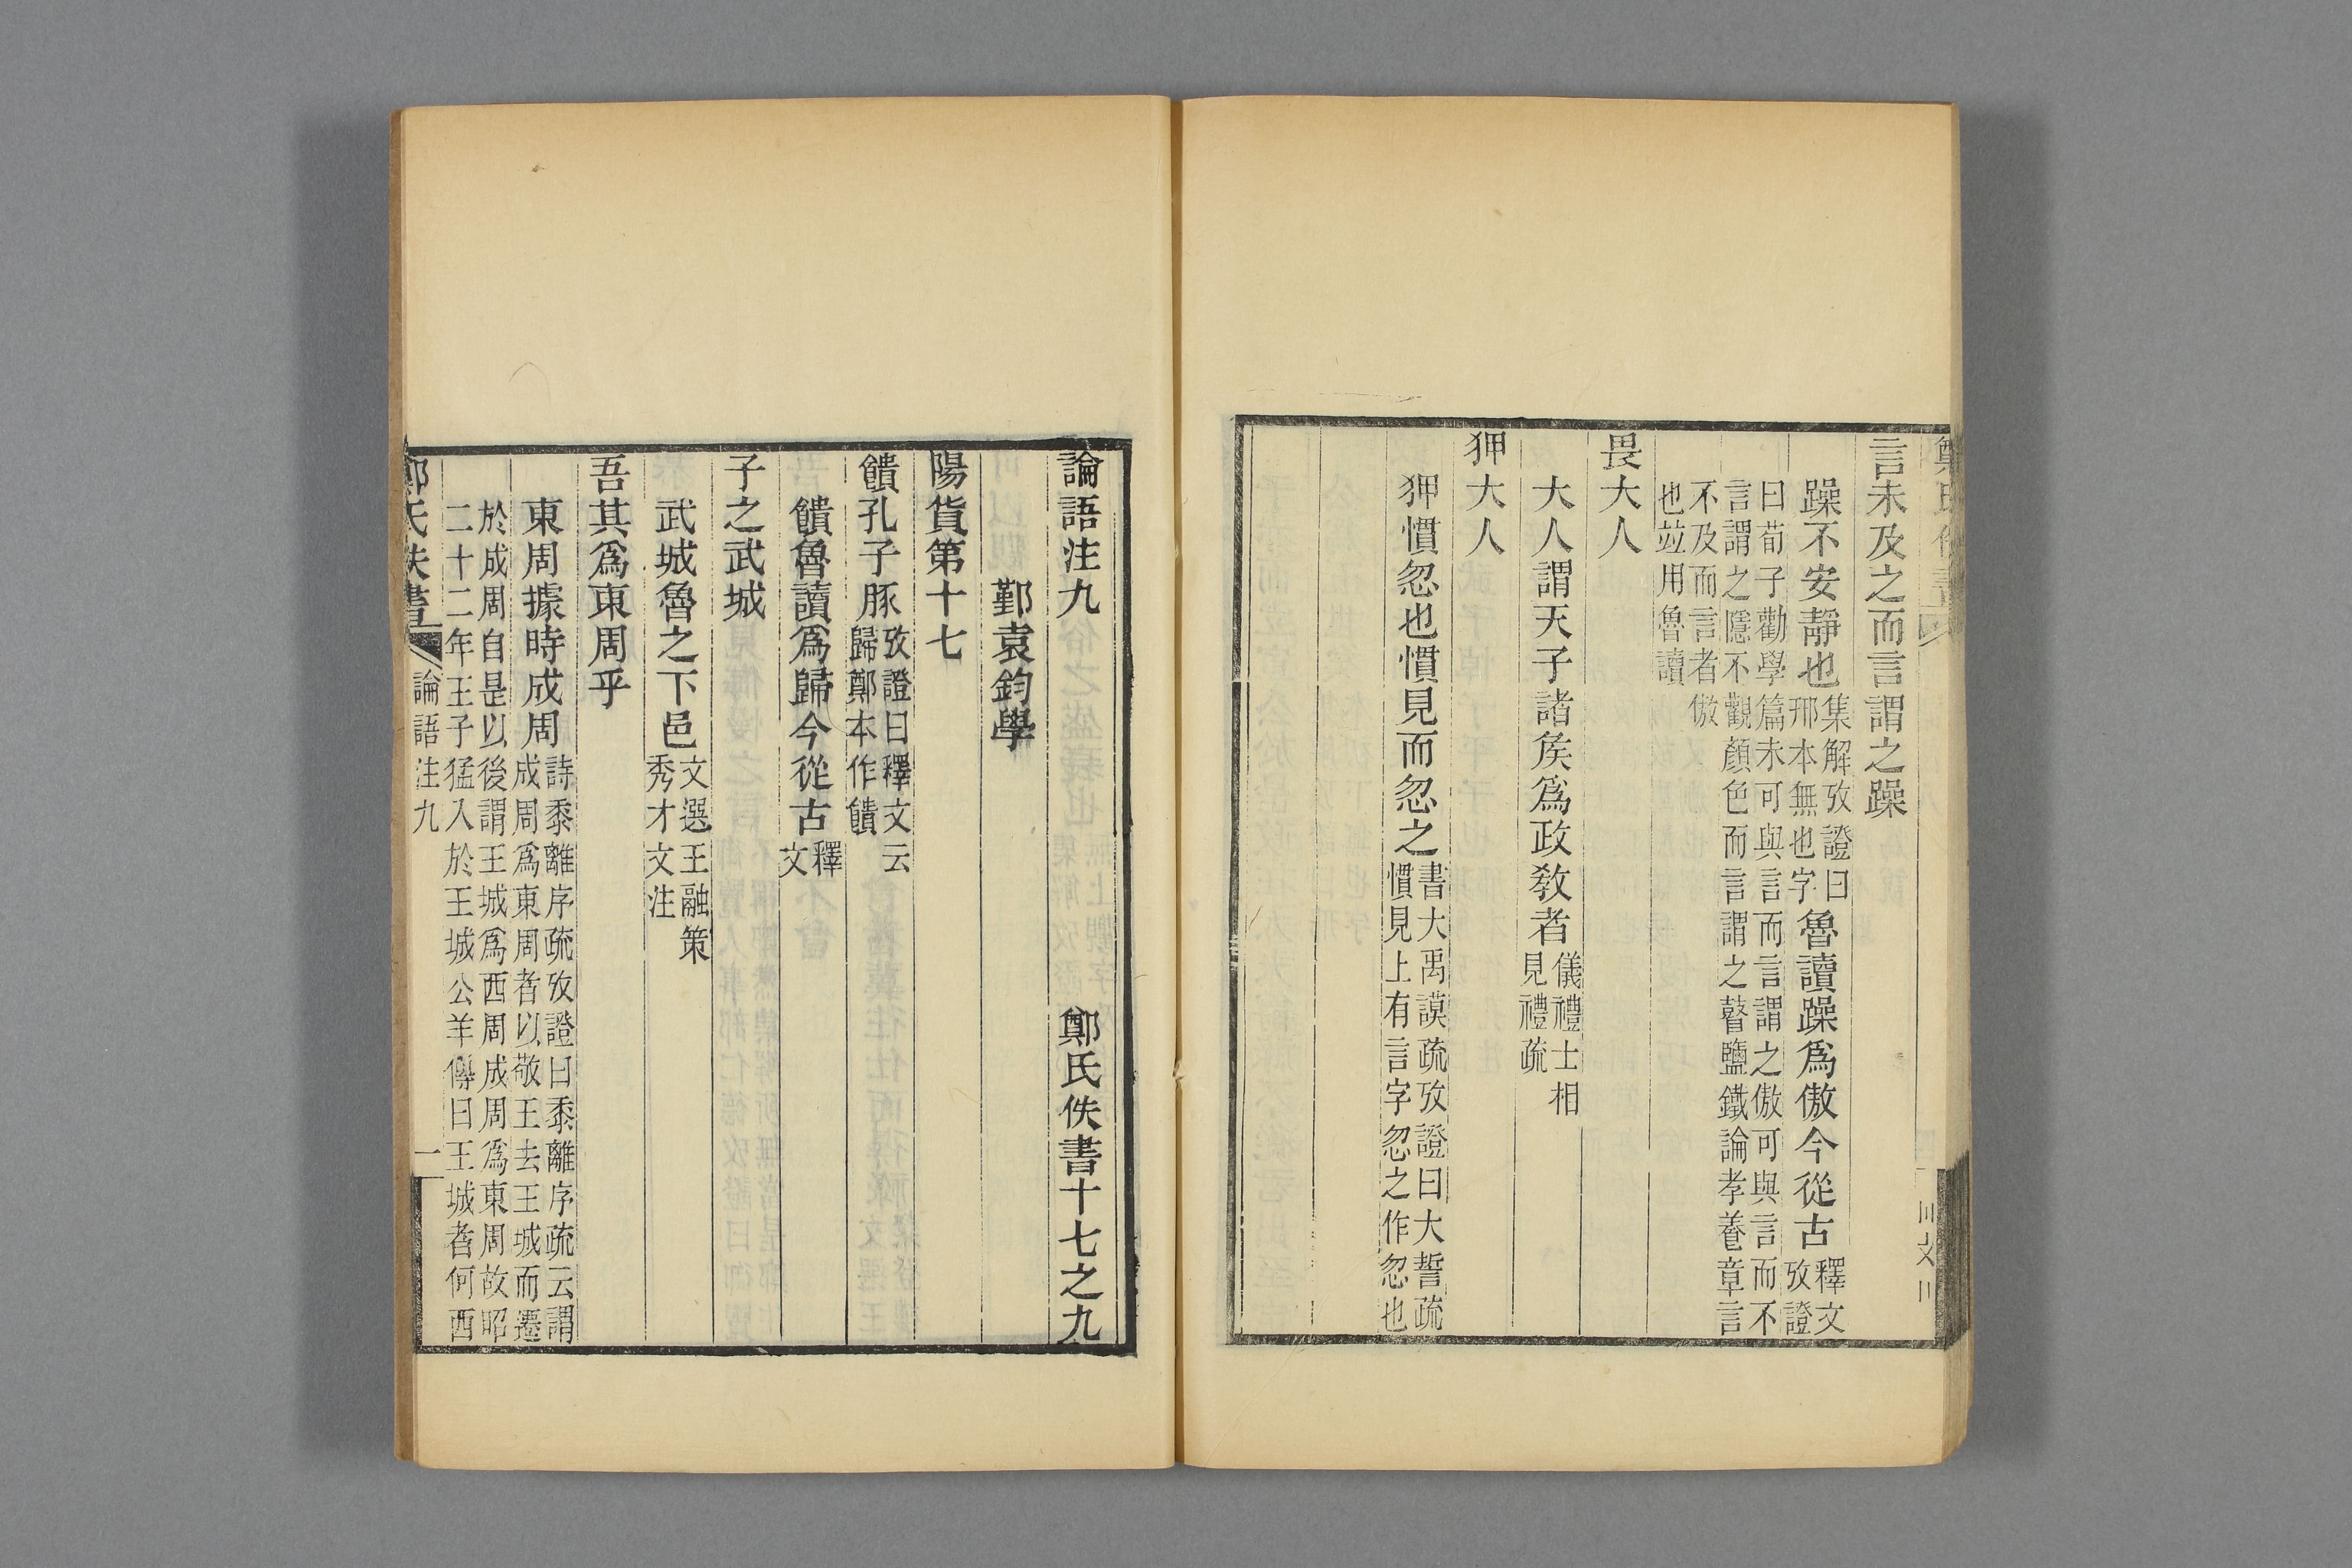 言未及之而言謂之躁
躁不安靜也集解攷證曰
邢本無也字魯讀躁爲傲今從古釋文
攷證
曰荀子勸學篇未可與言而言謂之傲可與言而不
言謂之隱不觀顏色而言謂之瞽鹽鐵論孝養章言
不及而言者傲
也竝用魯讀
畏大人
大人謂天子諸矦爲政敎者儀禮士相
見禮疏
狎大人
狎慣忽也慣見而忽之書大禹謨疏攷證曰大誓疏
慣見上有言字忽之作忽也
論語注九　鄭氏佚書十七之九
鄞袁鈞學
陽貨第十七
饋孔子豚攷證曰釋文云
歸鄭本作饋
饋魯讀爲歸今從古釋
文
子之武城
武城魯之下邑文選王融策
秀才文注
吾其爲東周乎
東周據時成周詩黍離序疏攷證曰黍離序疏云謂
成周爲東周者以敬王去王城而遷
於成周自是以後謂王城爲西周成周爲東周故昭
二十二年王子猛入於王城公羊傳曰王城者何西
鄭氏佚書
論語注九
一